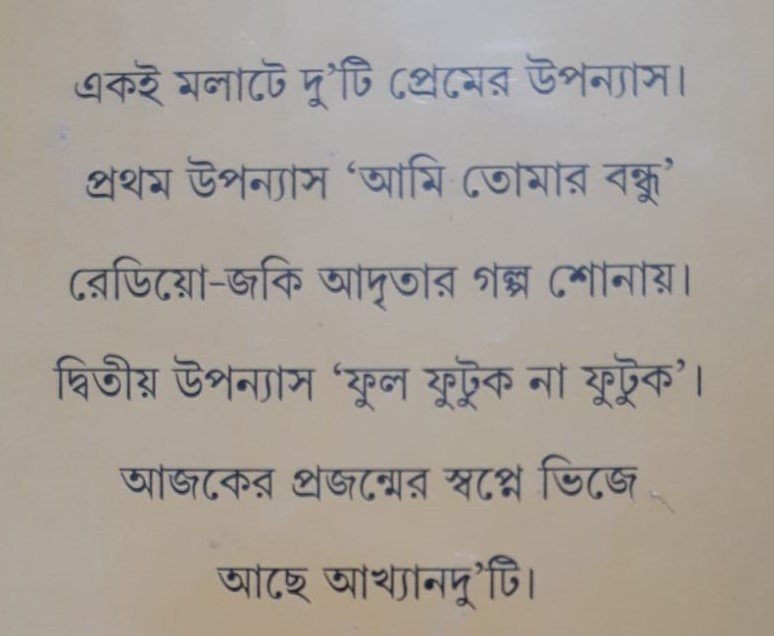 একই মলাটে দু’টি প্রেমের উপন্যাস।
প্রথম উপন্যাস ‘আমি তোমার বন্ধু’
রেডিয়ো-জকি আদৃতার গল্প শোনায়।
দ্বিতীয় উপন্যাস ‘ফুল ফুটুক না ফুটুক’।
আজকের প্রজন্মের স্বপ্নে ভিজে
আছে আখ্যানদু’টি।